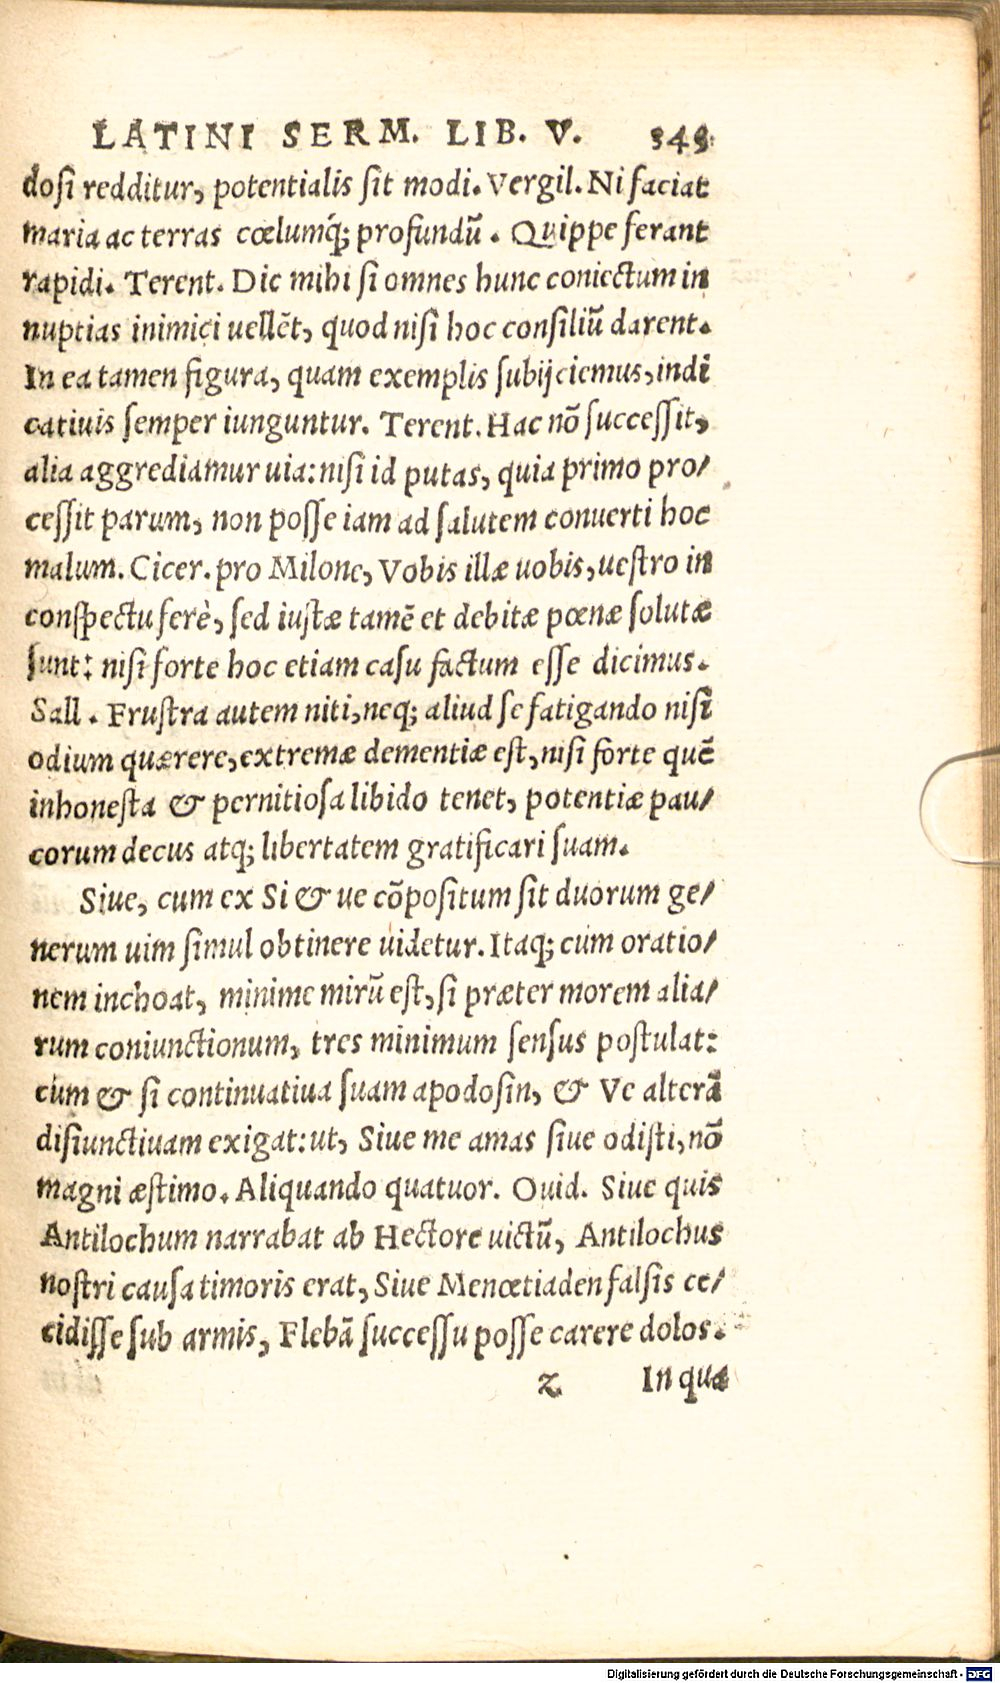 LATINI SERM. LIB. V. 349
dosi redditur, potentialis sit modi. Vergil. Ni faciat
maria ac terras cœlumq́; profundũ. Quippe ferant
rapidi. Terent. Dic mihi si omnes hunc coniectum in
nuptias inimici uellẽt, quod nisi hoc consiliũ darent.
In ea tamen figura, quam exemplis subijciemus, indi
catiuis semper iunguntur. Terent. Hac nõ successit,
alia aggrediamur uia: nisi id putas, quia primo pro/
cessit parum, non posse iam ad salutem conuerti hoc
malum. Cicer. pro Milone, Vobis illæ uobis, uestro in
conspectu ferè, sed iustæ tamẽ et debitæ pœnæ solutæ
sunt: nisi forte hoc etiam casu factum esse dicimus.
Sall. Frustra autem niti, neq; aliud se fatigando nisi
odium quærere, extremæ dementiæ est, nisi forte quẽ
inhonesta & pernitiosa libido tenet, potentiæ pau/
corum decus atq; libertatem gratificari suam.
Siue, cum ex Si & ue cõpositum sit duorum ge/
nerum uim simul obtinere uidetur. Itaq; cum oratio/
nem inchoat, minime mirũ est, si præter morem alia/
rum coniunctionum, tres minimum sensus postulat:
cùm & si continuatiua suam apodosin, & Ve alterã
disiunctiuam exigat: ut, Siue me amas siue odisti, nõ
magni æstimo. Aliquando quatuor. Ouid. Siue quis
Antilochum narrabat ab Hectore uictũ, Antilochus
nostri causa timoris erat, Siue Menœtiaden falsis ce/
cidisse sub armis, Flebã successu posse carere dolos.
z In quæ
Digitalisierung gefördert durch die Deutsche Forschungsgemeinschaft - DFG